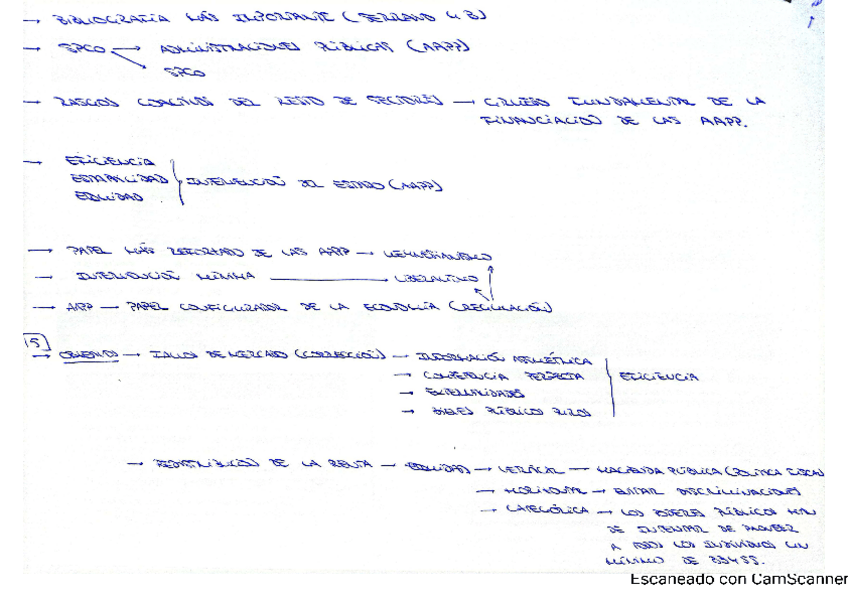 → BIBLIOGRAFÍA MÁS IMPORTANTE (SERRANO Y B)
→ SPCO → ADMINISTRACIONES PÚBLICAS (AAPP)
→ SPCO
→ RASGOS COACTIVOS DEL RESTO DE SECTORES → CIRCUITO FUNDAMENTAL DE LA
FINANCIACIÓN DE LAS AAPP.
→ EFICIENCIA
ESTABILIDAD } INTERVENCIÓN DEL ESTADO (AAPP)
EQUIDAD
→ PAPEL MÁS REFORZADO DE LAS AAPP → KEYNESIANISMO
→ INTERVENCIÓN MÍNIMA → LIBERALISMO
→ AAPP → PAPEL CONFIGURADOR DE LA ECONOMÍA (REGULACIÓN)
15)
→ OBJETIVOS → FALLOS DE MERCADO (CORRECCIÓN) → INFORMACIÓN ASIMÉTRICA
→ COMPETENCIA PERFECTA } EFICIENCIA
→ EXTERNALIDADES
→ BIENES PÚBLICOS PUROS
→ REDISTRIBUCIÓN DE LA RENTA → EQUIDAD → VERTICAL → HACIENDA PÚBLICA (POLÍTICA FISCAL)
→ HORIZONTAL → EVITAR DISCRIMINACIONES
→ CATEGÓRICA → LOS PODERES PÚBLICOS HAN
DE INTENTAR DE PROVEER
A TODOS LOS INDIVIDUOS UN
MÍNIMO DE BBYSS.
Escaneado con CamScanner